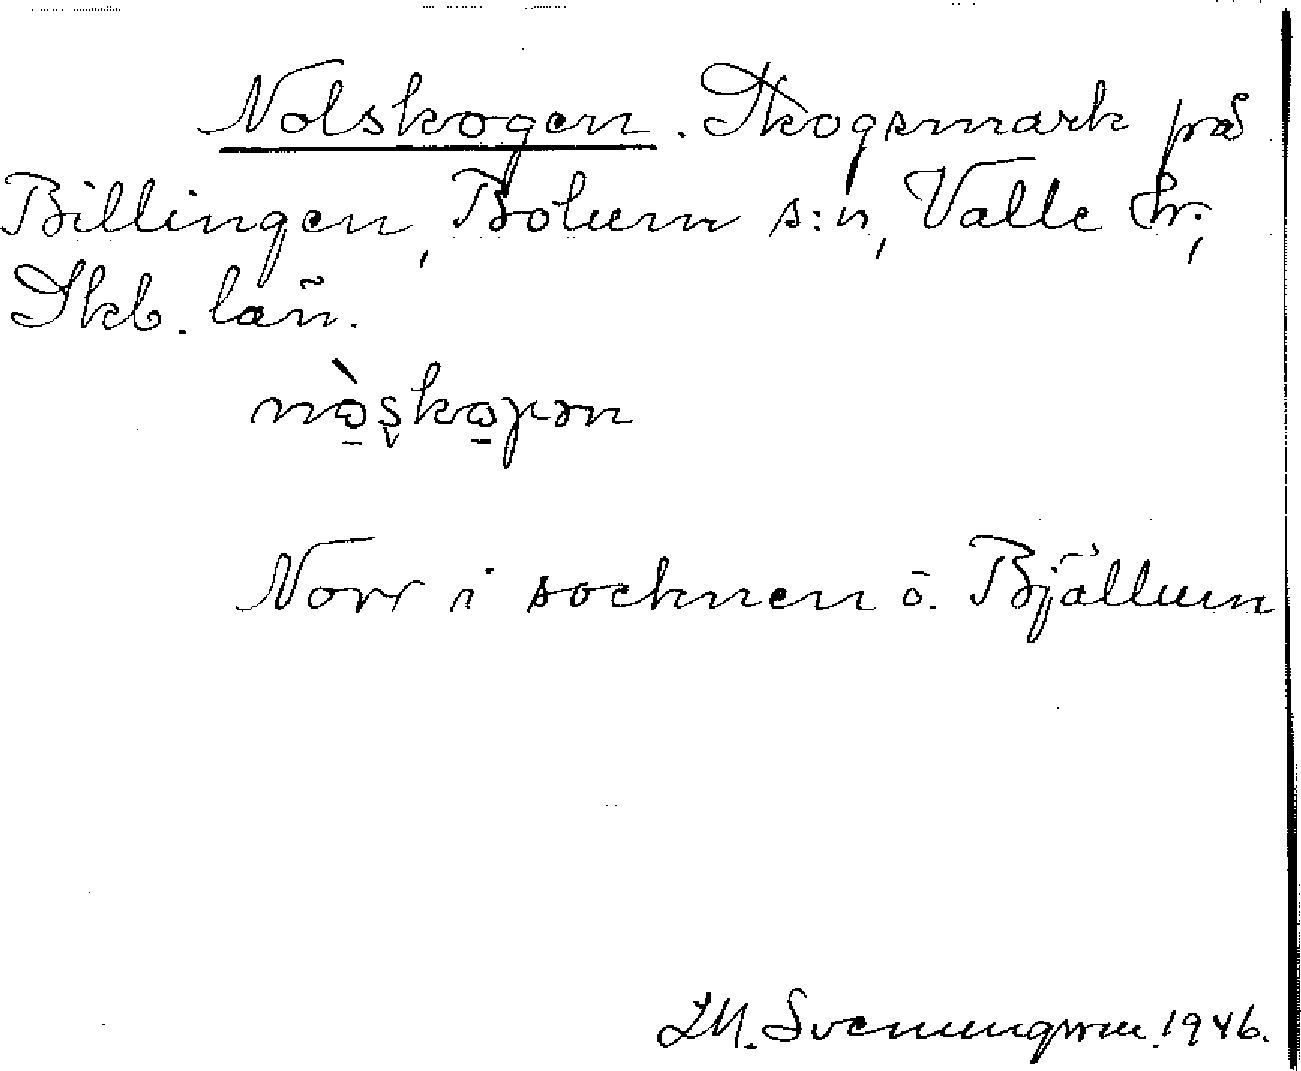 Nolskogen. Skogsmark på
Billingen, Bolum s:n, Valle hr,
Skb. län.
Norr i socknen ö. Bjällum
Svenungsson. 1946.